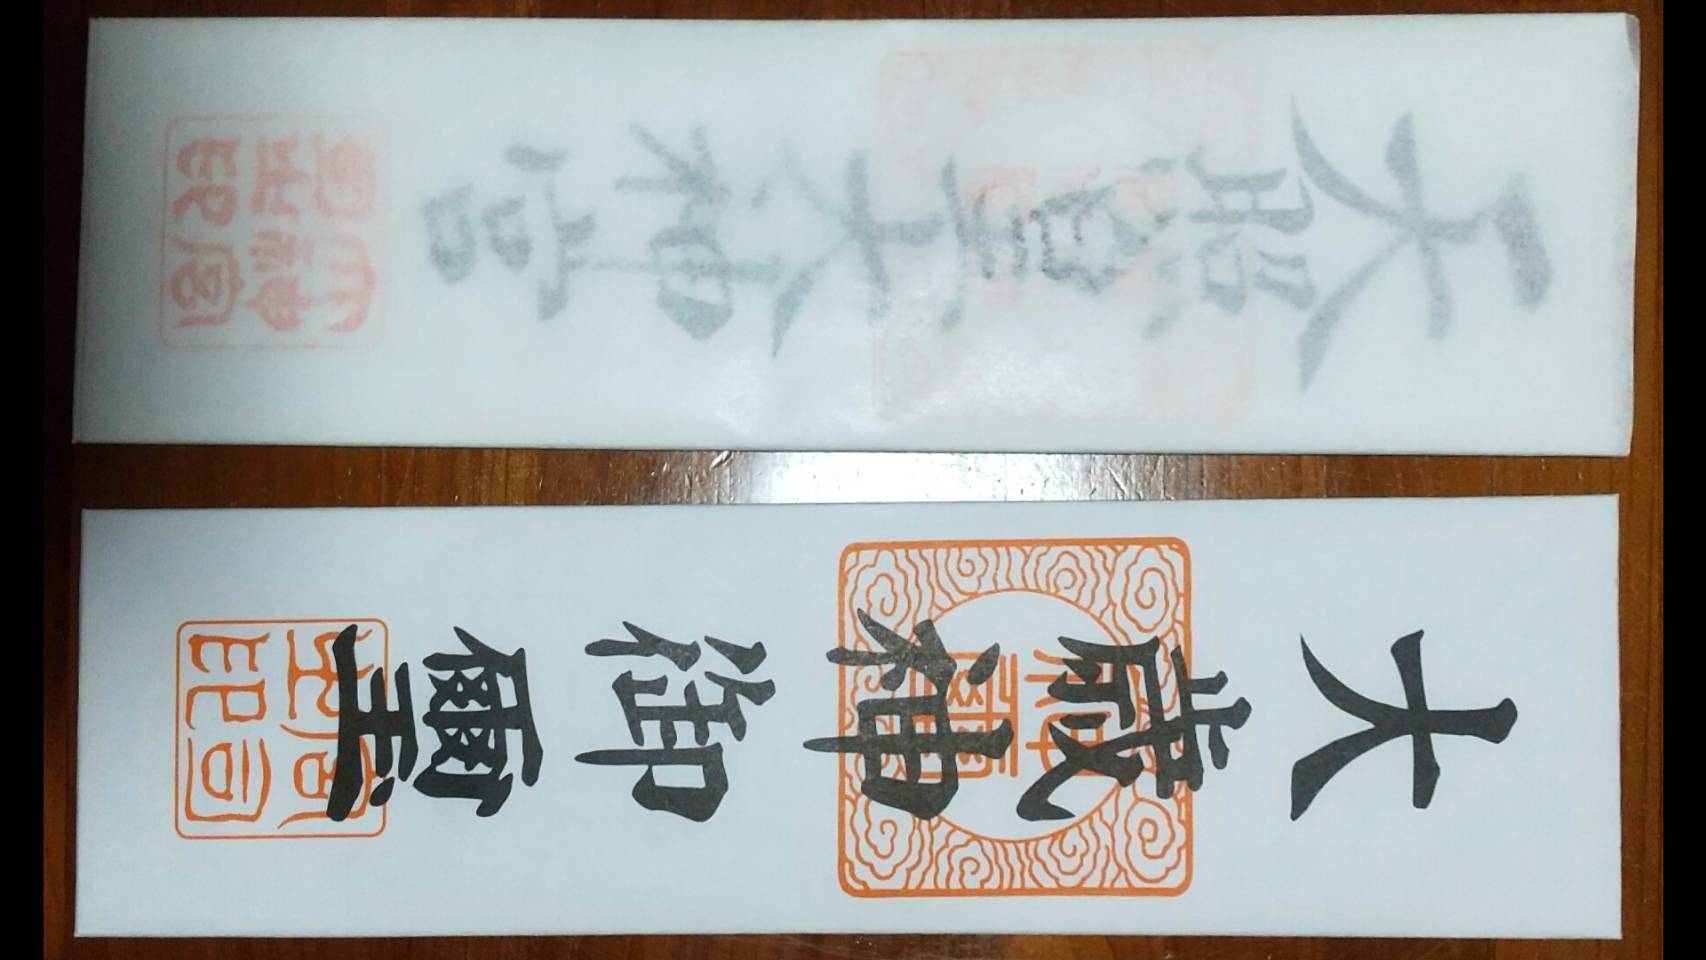 大歳神御璽
天照皇大神宮